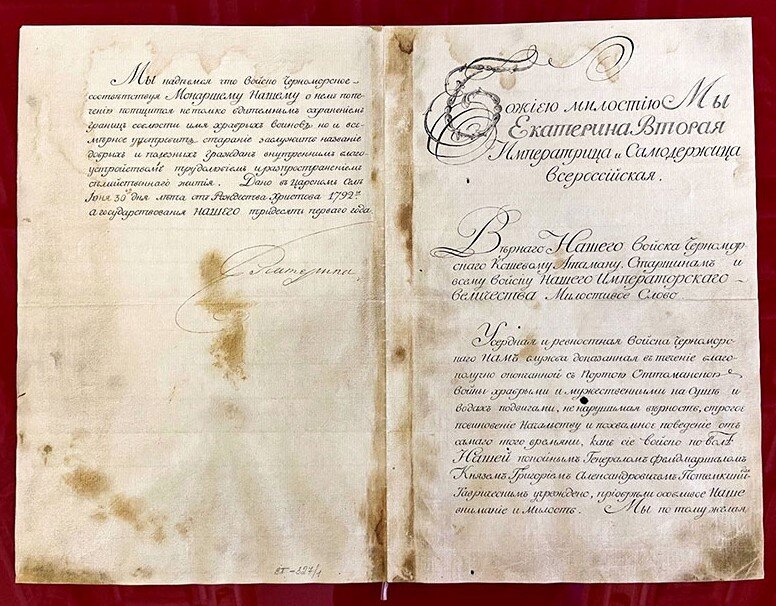 Мы надѣемся что Войско Черноморское
соотвѣтствуя Монаршему Нашему о немъ попе-
ченію потщится не только бдительнымъ охраненіемъ
границъ соблюсти имя храбрыхъ воиновъ но и все-
мѣрное употребитъ стараніе заслужить названіе
добрыхъ и полезныхъ гражданъ внутреннимъ благо-
устройствомъ трудолюбіемъ и распространеніемъ
семейственнаго житія. Дано въ Царскомъ Селѣ
Іюня 30го дня лѣта отъ Рождества Христова 1792го
а государствованія Нашего тридесять перваго года
Екатерина
ВТ-327/1
Божіею милостію Мы
Екатерина Вторая
Императрица и Самодержица
Всероссійская.
Вѣрнаго Нашего Войска Черномор-
скаго Кошевому Атаману, Старшинамъ и
всему Войску Нашего Императорскаго
величества Милостивое Слово
Усердная и ревностная Войска Черноморс-
каго Намъ служба доказанная въ теченіе благо-
получно оконченной съ Портою Оттоманскою
войны храбрыми и мужественными на Сушѣ и
водахъ подвигами, не нарушимая вѣрность, строгое
повиновеніе Начальству и похвальное поведеніе отъ
самаго того времяни, какъ сіе войско по волѣ
Нашей покойнымъ Генераломъ Фельдмаршаломъ
Княземъ Григоріемъ Александровичемъ Потемкинымъ
Таврическимъ учреждено, пріобрѣли особливое Наше
вниманіе и Милость. Мы по тому желая